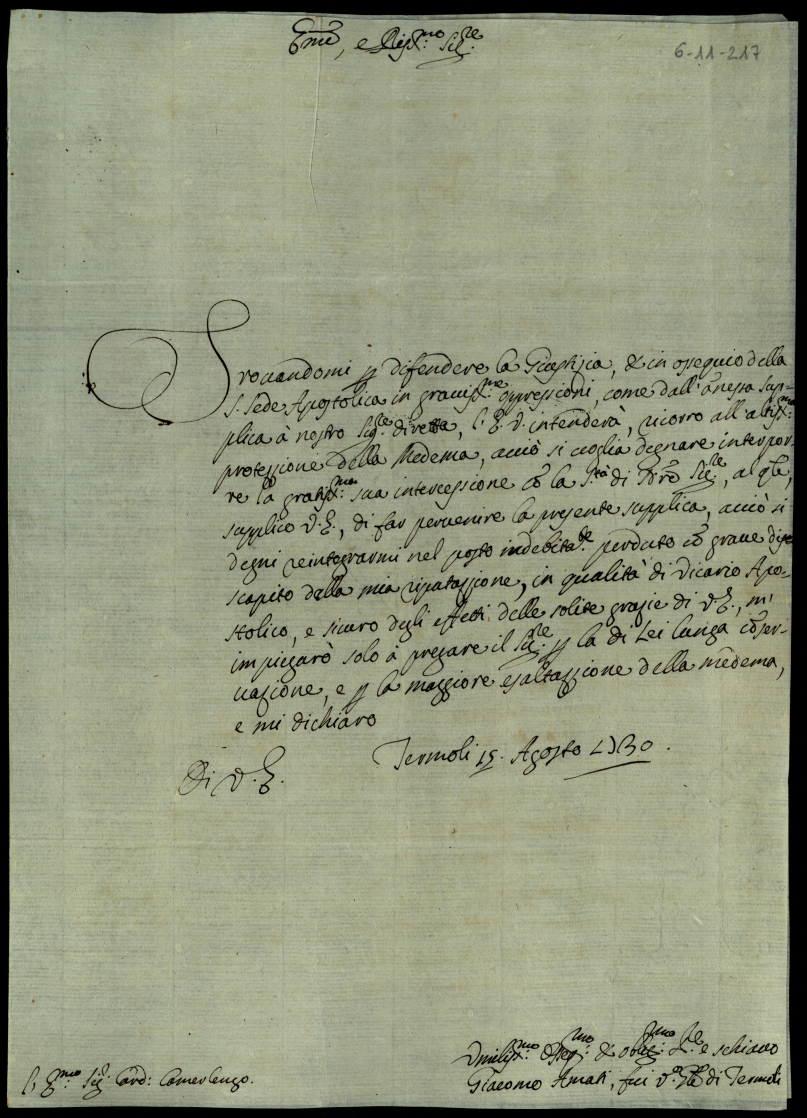 Em̃e, e Rev.mo Sig.re
6-11-217
Trovandomi p difendere la Giustizia, & in ossequio della
S. Sede Apostolica in graviss.me oppressioni, come dall'añessa sup-
plica à nostro Sig.re diretta, l'E. V. intenderà, ricorro all'altiss.ma
protezzione della Medema, acciò si voglia degnare interpor-
re la gratiss.ma sua intercessione cõ la S.tà di Nrõ Sig.re, al q̃le,
supplico V. E., di far pervenire la presente supplica, acciò si
degni reintegrarmi nel posto indebitã.te perduto cõ grave dis-
scapito della mia riputazzione, in qualità di Vicario Apo-
stolico, e sicuro degli effetti delle solite grazie di V. E., m'
impiegarò solo à pregare il Sig.re p la di Lei lunga cõser-
vazione, e p la maggiore esaltazzione della medema,
e mi dichiaro
Termoli 15. Agosto 1730.
Di V. E.
Umiliss.mo & oblig.mo S.re e schiavo
Giacomo Amati, fui V.o di Termoli
l' Em.mo Sig. Card: Camerlengo.